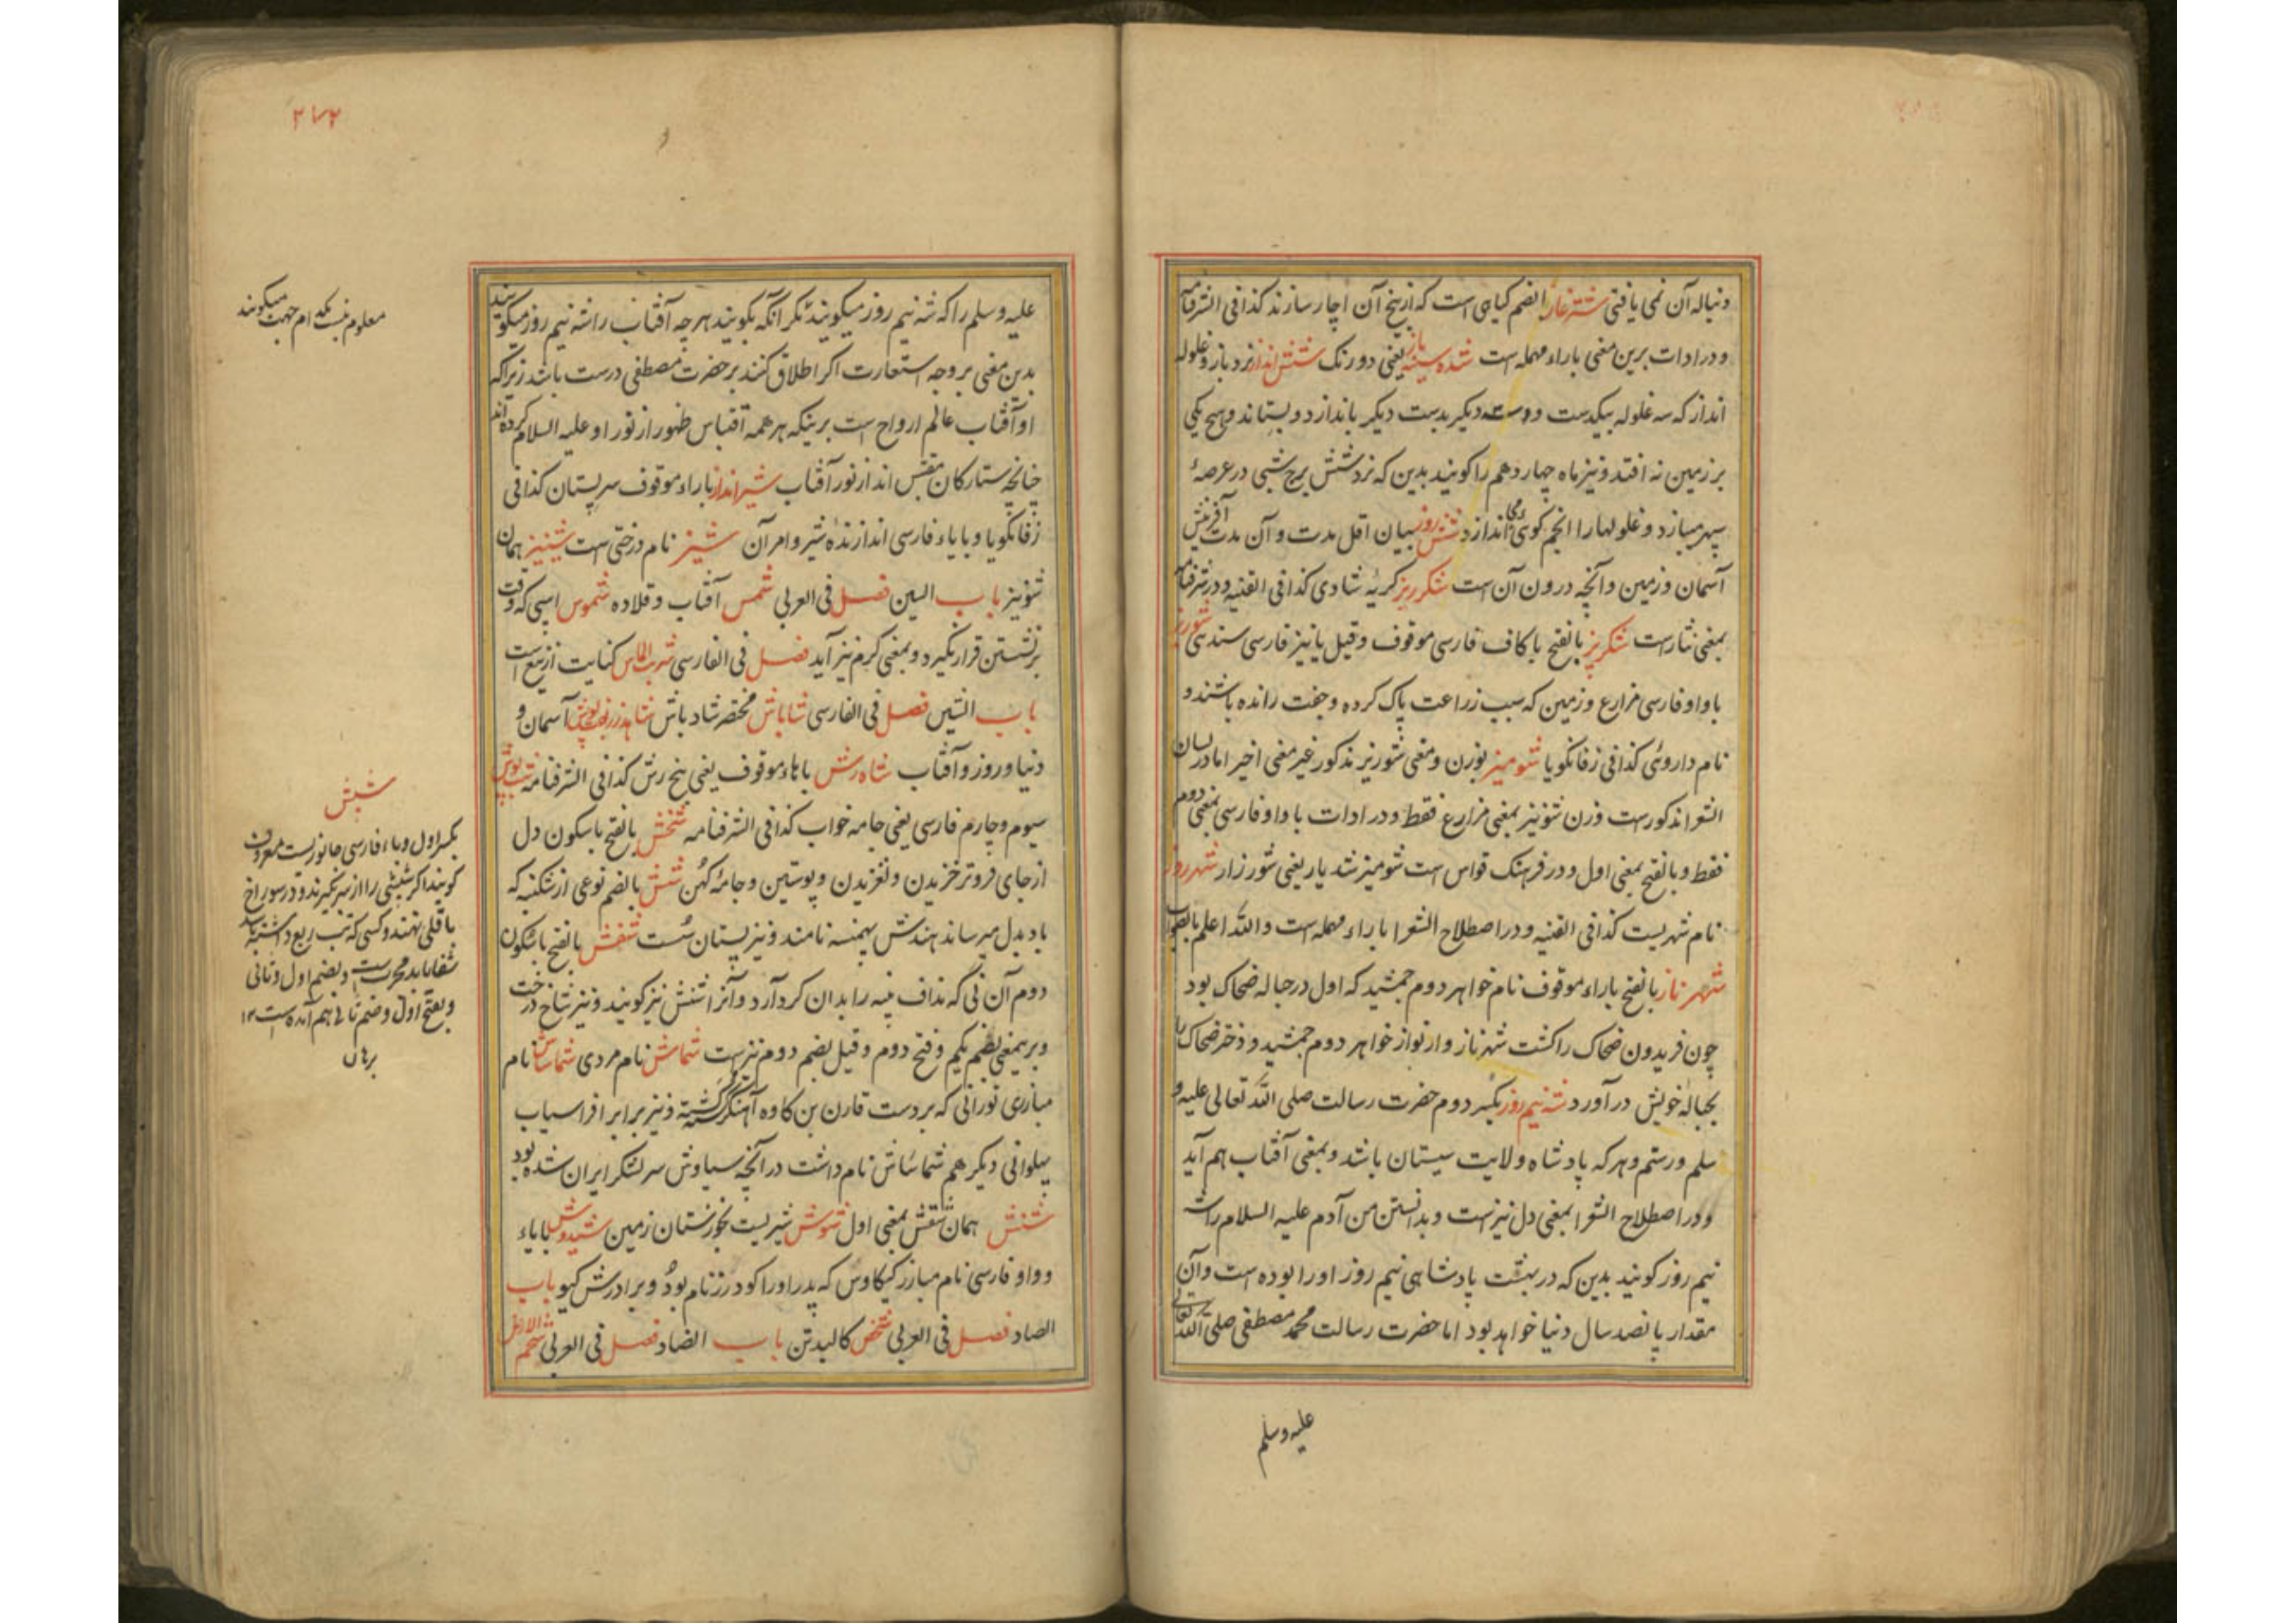 دنباله آن نمی یافتی شترغاز بالضم کیاهی است که از بیخ آن اچار سازند کذا فی الشرفنامه
و در ادات برین معنی باراء مهمله است شده سینه باز یعنی دو رنک شش انداز نرد باز و غلوله
انداز که سه غلوله بیکدست و سه دیکر بدست دیکر باندازد و بستاند و هیچ یکی
بر زمین نه افتد و نیز ماه چهاردهم را کویند بدین که نرد شش برج شبی در عرصهٔ
سپهر میبازد و غلولها را انجم کوئی می اندازد شش روز بیان اقل مدت و آن مدت آفرینش
آسمان و زمین و آنچه درون آن است شکرریز کریهٔ شادی کذا فی القنیه و در شرفنامه
بمعنی نثار است شکریز بالفتح با کاف فارسی موقوف و قیل یا نیز فارسی سندسی شوریز
با واو فارسی مزارع و زمین که سبب زراعت پاک کرده و جفت رانده باشند و
نام داروئی کذا فی زفانکویا شومیز بوزن و معنی شوریز مذکور غیر معنی اخیر اما در لسان
الشعرا مذکور است وزن شونیز بمعنی مزارع فقط و در ادات با واو فارسی بمعنی دوم
فقط و بالفتح بمعنی اول و در فرهنک قواس است شومیز شد یار یعنی شورزار شهرروز
نام شهریست کذا فی القنیه و در اصطلاح الشعرا با راء مهمله است والله اعلم بالصواب
شهرناز بالفتح باراء موقوف نام خواهر دوم جمشید که اول در حباله ضحاک بود
چون فریدون ضحاک را کشت شهرناز و ارنواز خواهر دوم جمشید و دختر ضحاک را
بحبالهٔ خویش در آورد شه نیم روز بکسر دوم حضرت رسالت صلی الله تعالی علیه و
سلم و رستم و هر که پادشاه ولایت سیستان باشد و بمعنی آفتاب هم آید
و در اصطلاح الشعرا بمعنی دل نیز است و بدانستن من آدم علیه السلام را شه
نیم روز کویند بدین که در بهشت پادشاهی نیم روز او را بوده است و آن
مقدار پانصد سال دنیا خواهد بود اما حضرت رسالت محمد مصطفی صلی الله تعالی
علیه وسلم
۲۷۲
علیه وسلم را که شه نیم روز میکویند مکر آنکه بکویند هر چه آفتاب را شه نیم روز میکویند
بدین معنی بر وجه استعارت اکر اطلاق کنند بر حضرت مصطفی درست باشد زیرا که
او آفتاب عالم ارواح است برینکه هر همه اقتباس ظهور از نور او علیه السلام کرده اند
چنانچه ستارکان مقتبس اند از نور آفتاب شیرانداز باراء موقوف سر پستان کذا فی
زفانکویا و با یاء فارسی اندازندهٔ شیر و امر آن شیز نام درختی است شینیز همان
شونیز باب السین فصل فی العربی شمس آفتاب و قلاده شموس اسپی که وقت
برنشستن قرار نکیرد و بمعنی کرم نیز آید فصل فی الفارسی شربت الماس کنایت از تیغ است
باب الشین فصل فی الفارسی شاباش مختصر شاد باش شاهد زربفت پوش آسمان و
دنیا و روز و آفتاب شاه رش باهاء موقوف یعنی پنج رش کذا فی الشرفنامه شب پوش
سیوم و چارم فارسی یعنی جامه خواب کذا فی الشرفنامه شخش بالفتح با سکون دل
از جای فروتر خزیدن و لغزیدن و پوستین و جامهٔ کهن شش بالضم نوعی از شکنبه که
باد بدل میرساند هندش پهمنسه نامند و نیز پستان سست شفش بالفتح با سکون
دوم آن نی که نداف پنبه را بدان کرد آرد و آنرا شنش نیز کویند و نیز شاخ درخت
و برینمعنی بضم یکم و فتح دوم و قیل بضم دوم نیز است شماش نام مردی شماساش نام
مبارزی تورانی که بردست قارن بن کاوه آهنکر کشته و نیز برابر افراسیاب
پهلوانی دیکر هم شماساش نام داشت در آنچه سیاوش سر لشکر ایران شده بود
شنش همان شفش بمعنی اول شوش شهریست بخوزستان زمین شیدوش بایاء
و واو فارسی نام مبارز کیکاوس که پدر او را کودرز نام بود و برادرش کیو باب
الصاد فصل فی العربی شخص کالبدتن باب الضاد فصل فی العربی شحم الارض
معلوم نیست کدام جهت میکویند
شپش
بکسر اول و باء فارسی جانوریست معروف
کویند اکر شپشی را از سر بکیرند و در سوراخ
باقلی نهند و کسی که تب ربع داشته باشد
شفا یابد مجرب است و بضم اول و ثانی
و بفتح اول و ضم ثانی هم آمده است ۱۲
برهان